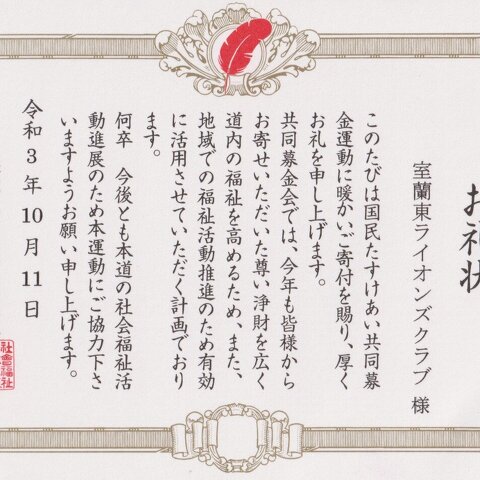 お礼状
室蘭東ライオンズクラブ 様
このたびは国民たすけあい共同募
金運動に暖かいご寄付を賜り、厚く
お礼を申し上げます。
共同募金会では、今年も皆様から
お寄せいただいた尊い浄財を広く
道内の福祉を高めるため、また、
地域での福祉活動推進のため有効
に活用させていただく計画でおり
ます。
何卒 今後とも本道の社会福祉活
動進展のため本運動にご協力下さ
いますようお願い申し上げます。
令和3年10月11日
社會福祉